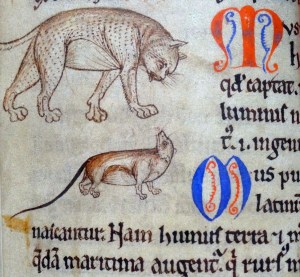 Mus
h
qđ captat.
luminis n
t̛. i. ingeni
Mus pu
latinū
nascantur. Nam humus terra .i.
qđā maritima augent̛. q̄ rurs᾽